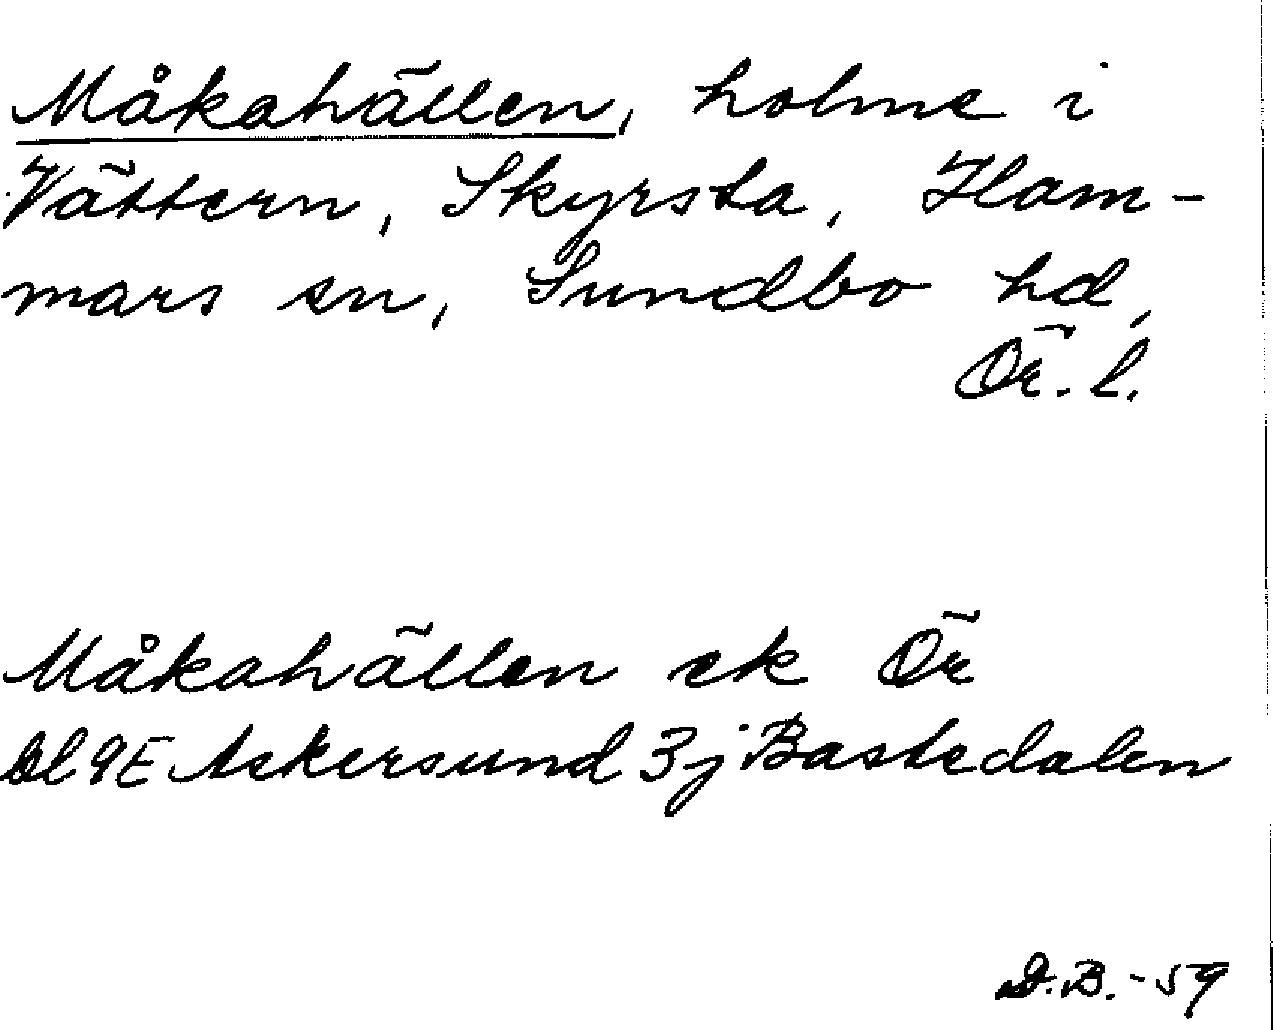 Måkahällen, holme i
Vättern, Skyrsta, Ham-
mars sn, Sundbo hd,
Ör. l.
Måkahällen ek Ör
Bl 9E Askersund 3j Bastedalen
D.B. -59